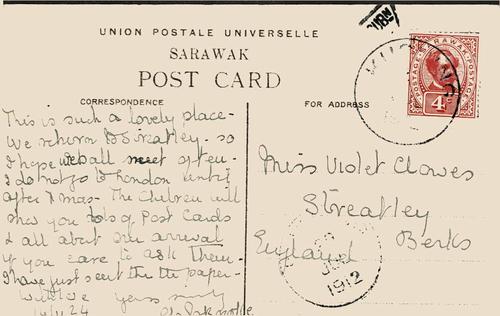 UNION POSTALE UNIVERSELLE
SARAWAK
POST CARD
CORRESPONDENCE
FOR ADDRESS
SARAWAK
POSTAGE
POSTAGE
4
This is such a lovely place-
We return to Streatley - so
I hope we shall meet often-
I do not go to London until
after Xmas - The Children will
show you lots of Post Cards
& all about our arrival
if you care to ask them-
I have just sent the paper-
yours
Miss Violet Clowes
Streatley
Berks
England
1912